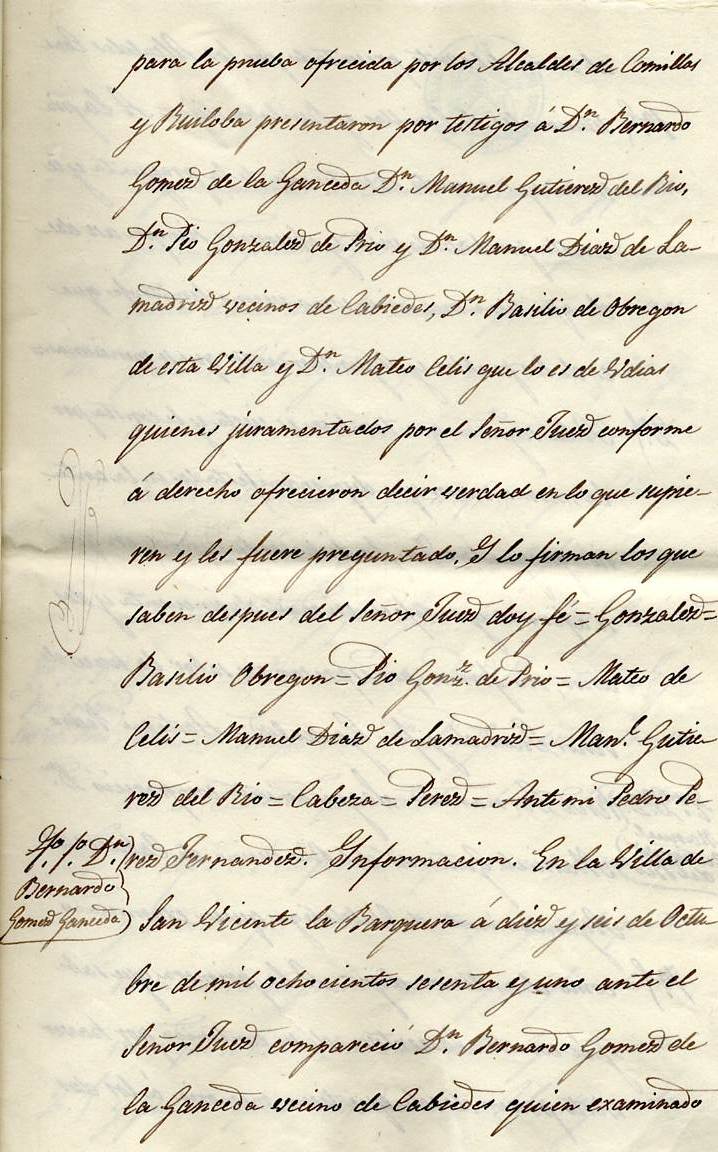 para la prueba ofrecida por los Alcaldes de Comillas
y Ruiloba presentaron por testigos á D.n Bernardo
Gomez de la Ganceda D.n Manuel Gutierez del Rio,
D.n Pio Gonzalez de Prio y D.n Manuel Diaz de La-
madriz vecinos de Cabiedes, D.n Basilio de Obregon
de esta Villa y D.n Mateo Celis que lo es de Udias
quienes juramentados por el Señor Juez conforme
á derecho ofrecieron decir verdad en lo que supie-
ren y les fuere preguntado. Y lo firman los que
saben despues del Señor Juez doy fé = Gonzalez =
Basilio Obregon = Pio Gonz.z de Prio = Mateo de
Celis = Manuel Diaz de Lamadriz = Man.l Gutie-
rez del Rio = Cabeza = Perez = Ante mi Pedro Pe-
rez Fernandez. Informacion. En la Villa de
San Vicente la Barquera á diez y seis de Octu-
bre de mil ochocientos sesenta y uno ante el
Señor Juez compareció D.n Bernardo Gomez de
la Ganceda vecino de Cabiedes quien examinado
D.n
Bernardo
Gomez Ganceda